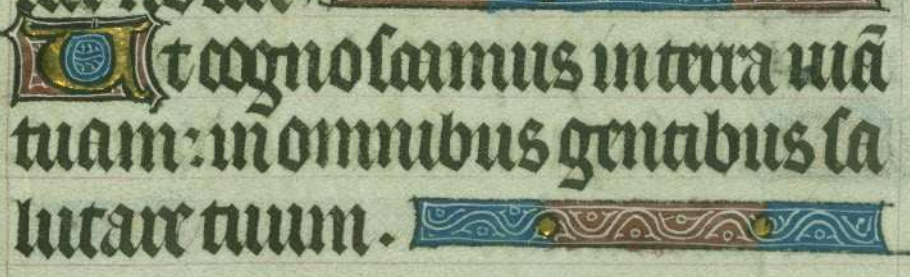 Ut cognoſcamus in terra uiã
tuam: in omnibus gentibus ſa
lutare tuum.